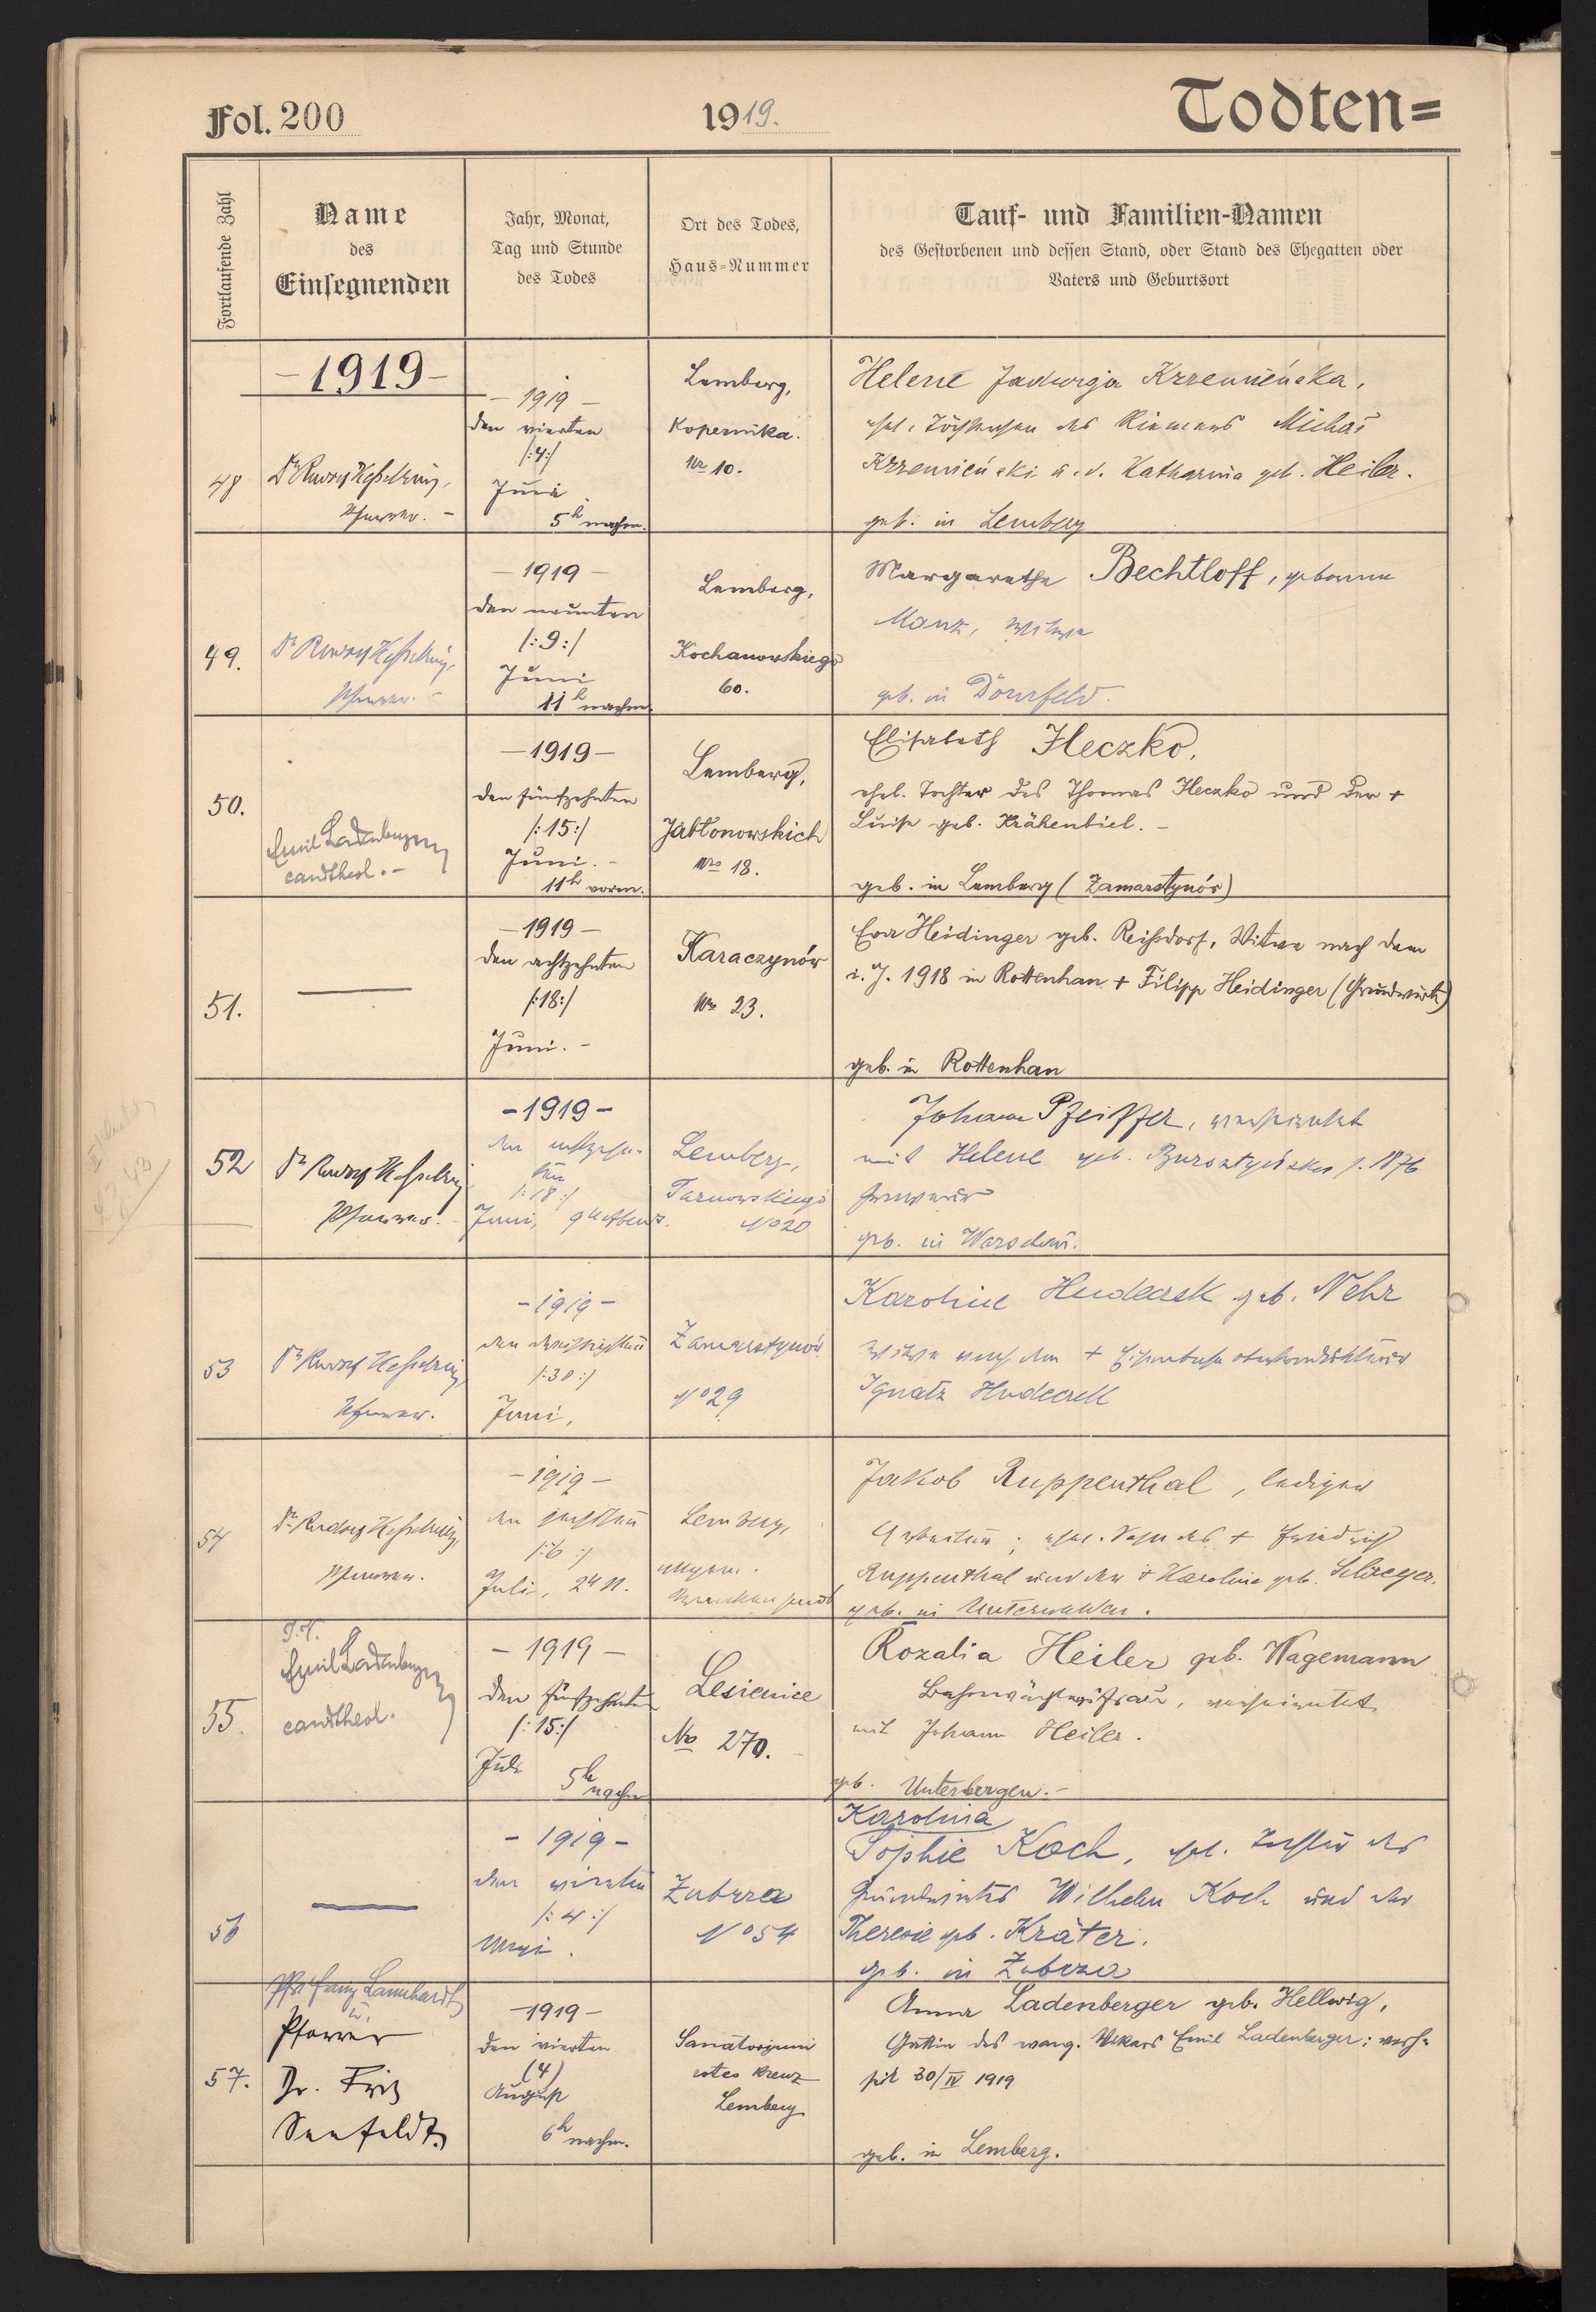 Fol. 200
1919.
Todten=
Fortlaufende Zahl
Name
des
Einsegnenden
Jahr, Monat,
Tag und Stunde
des Todes
Ort des Todes,
Haus-Nummer
Tauf- und Familien-Namen
des Gestorbenen und dessen Stand, oder Stand des Ehegatten oder
Vaters und Geburtsort
- 1919 -
48
Dr Rudolf Kesselring,
Pfarrer. -
- 1919 -
den vierten
/:4:/
Juni
5h nachm.
Lemberg,
Kopernika.
Nr 10.
Helene Jadwiga Krzemieńska,
ehel. Töchterchen des Riemers Michał
Krzemieński u. d. Katharina geb. Heiler.
geb. in Lemberg
49.
Dr Rudolf Kesselring,
Pfarrer. -
- 1919 -
den neunten
/:9:/
Juni
11h nachm.
Lemberg,
Kochanowskiego
60.
Margarethe Bechtloff, geborene
Manz, Witwe
geb. in Dornfeld.
50.
Emil Ladenberger
cand theol. -
- 1919 -
den fünfzehnten
/:15:/
Juni. -
11h vorm.
Lemberg,
Jabłonowskich
Nro 18.
Elisabeth Heczko,
ehel. Tochter des Thomas Heczko und der +
Luise geb. Krähenbiel. -
geb. in Lemberg (Zamarstynów)
51.
- 1919 -
den achtzehnten
/:18:/
Juni. -
Karaczynów
Nro 23.
Eva Heidinger geb. Reißdorf, Witwe nach dem
i. J. 1918 in Rottenhan + Filipp Heidinger (Grundwirth)
geb. in Rottenhan
52
Dr Rudolf Kesselring
Pfarrer. -
- 1919 -
den achtzehn-
ten
/:18:/
Juni, 9h Abends.
Lemberg,
Tarnowskiego
No 20
Johann Pfeiffer, verheiratet
mit Helene geb. Bursztyńska s. 1876
geb. in Warschau.
53
Dr Rudolf Kesselring,
Pfarrer.
- 1919 -
den dreissigsten
/:30:/
Juni,
Zamarstynów
No 29
Karoline Hudecsek geb. Nehr
Witwe nach dem + Eisenbahnoberkondukteur
Ignatz Hudecsek
54
Dr Rudolf Kesselring,
Pfarrer.
- 1919 -
den sechsten
/:6:/
Juli, 2h N.
Lemberg,
allgem.
Krankenhaus
Jakob Ruppenthal, lediger
Arbeiter; ehel. Sohn des + Friedrich
Ruppenthal und der + Karoline geb. Schreyer.
geb. in Unterwalden.
55.
Emil Ladenberger
cand theol.
- 1919 -
den fünfzehnten
/:15:/
Juli
5h nachm
Lesienice
No 270.
Rozalia Heiler geb. Wagemann
Bahnwächtersfrau, verheiratet
mit Johann Heiler.
geb. Unterbergen. -
56
- 1919 -
den vierten
/:4:/
Mai.
Zubrza
No 54
Karolina
Sophie Koch, ehel. Tochter des
Grundwirtes Wilhelm Koch und der
Theresie geb. Kräter.
geb. in Zubrza
57.
Pfr. Franz Lannhardt
u.
Pfarrer
Dr. Fritz
Seefeldt.
- 1919 -
den vierten
(4)
August
6h nachm.
Sanatorium
rotes Kreuz
Lemberg
Anna Ladenberger geb. Hellwig,
Gattin des evang. Vikars Emil Ladenberger; verh.
seit 30/IV 1919
geb. in Lemberg.